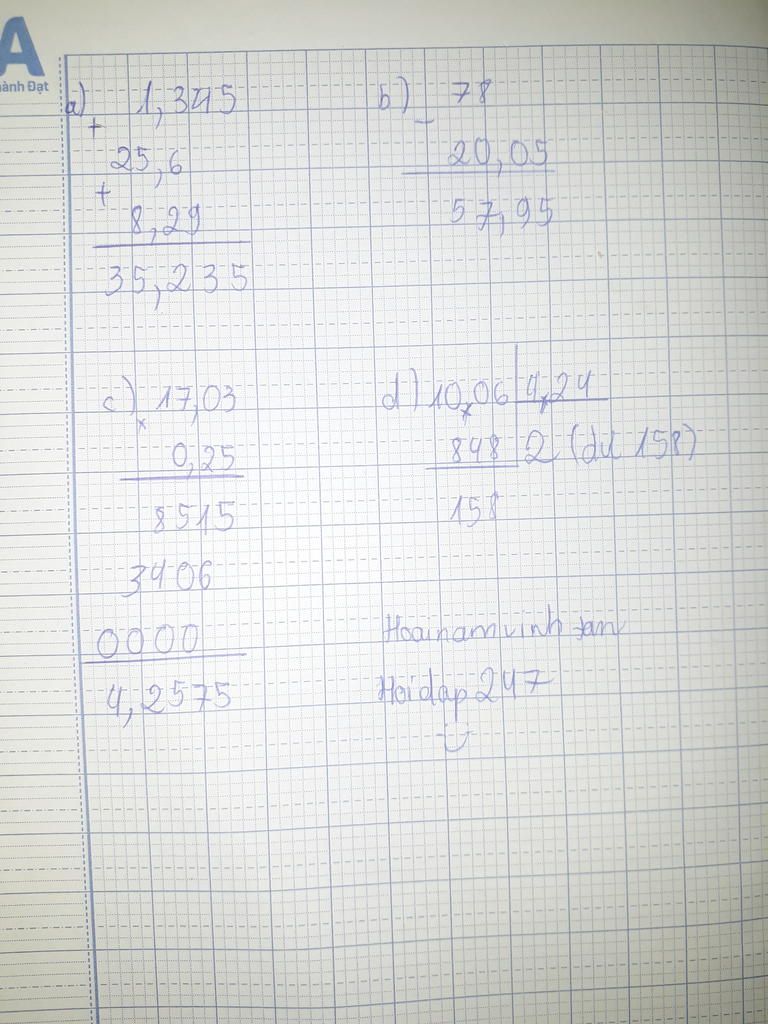 A
ành Đạt
a) 1,345
+
25,6
+
8,29
35,235
b) 78
-
20,05
57,95
c) 17,03
x
0,25
8515
3406
0000
4,2575
d) 10,06 4,24
848 2 (dư 158)
158
Hoainamvinh
Hoidap247